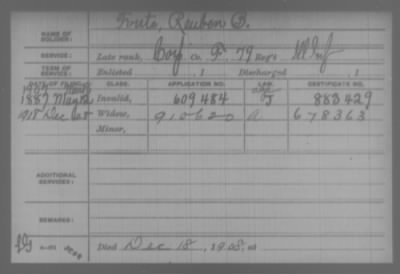 Reuben
NAME OF SOLDIER:
SERVICE: Late rank, Corp Co. F. 79 Reg't Ill Inf
TERM OF SERVICE: Enlisted , 1 Discharged , 1
DATE OF FILING. CLASS. APPLICATION NO. LAW. CERTIFICATE NO.
1887 Invalid, 609484 J 883429
1918 Dec Widow, 910620 a 678363
Minor,
ADDITIONAL SERVICES:
REMARKS:
Died Dec 18, 1908, at